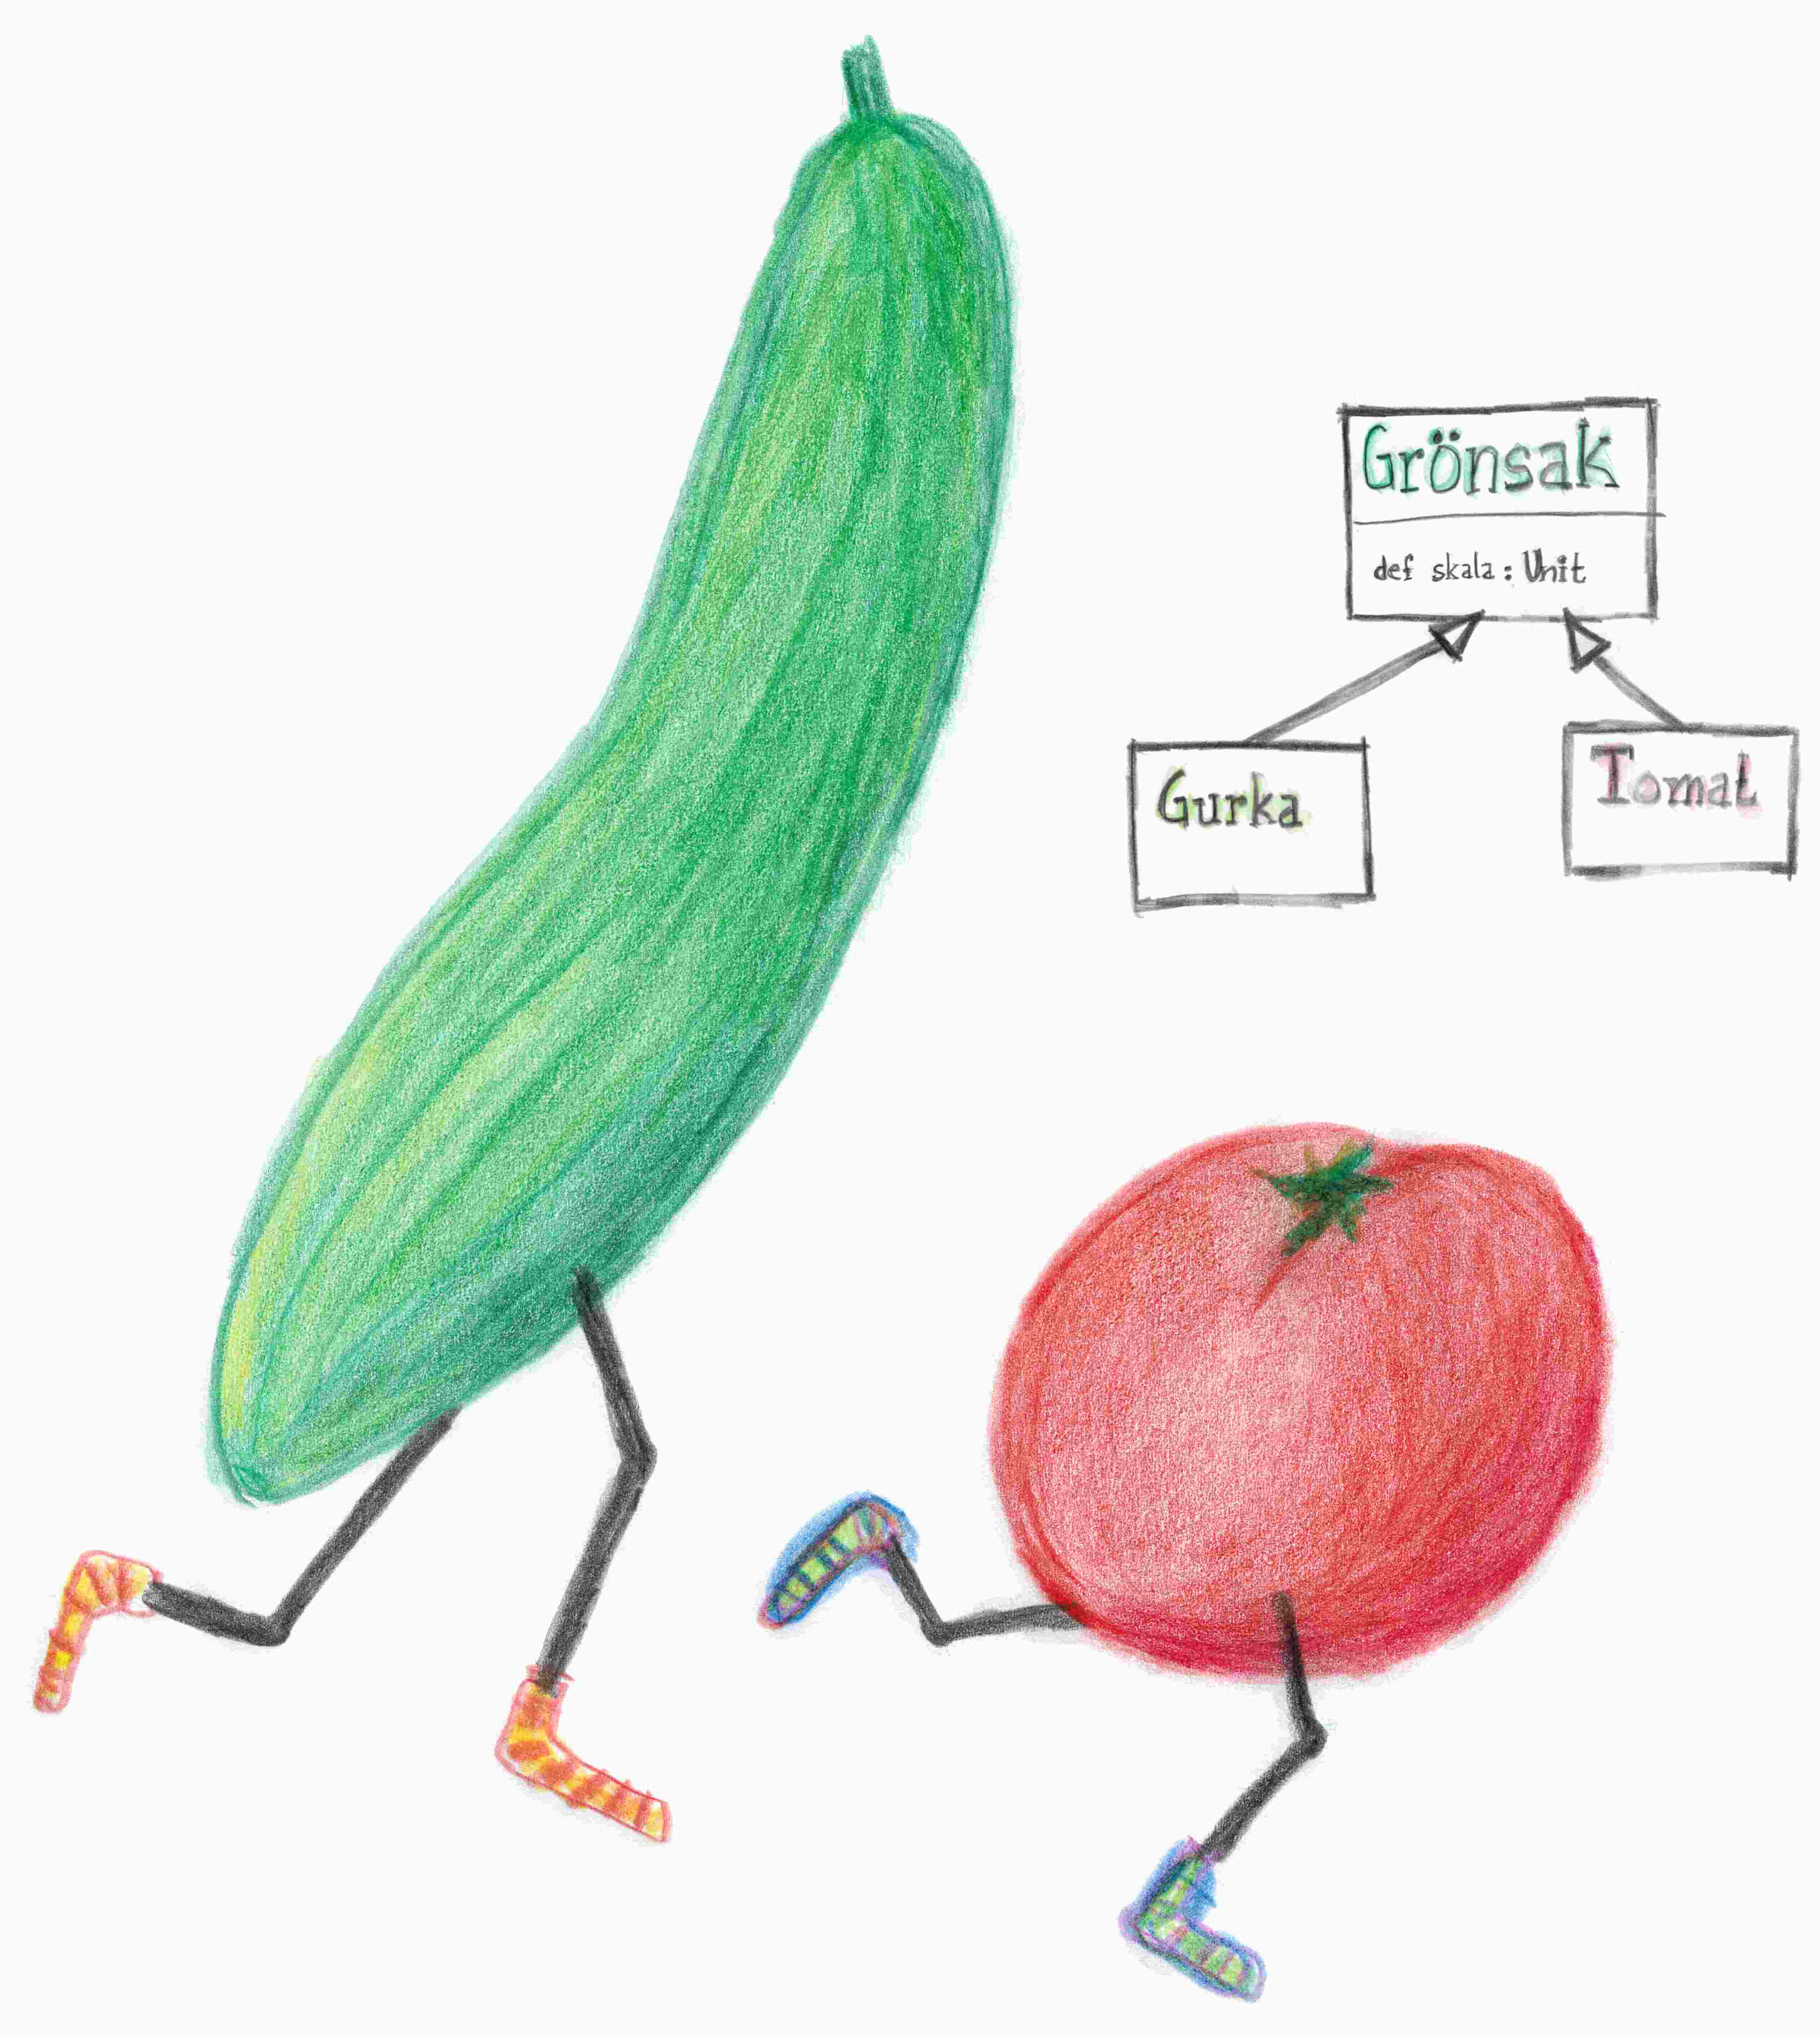 Grönsak
def skala: Unit
Gurka
Tomat